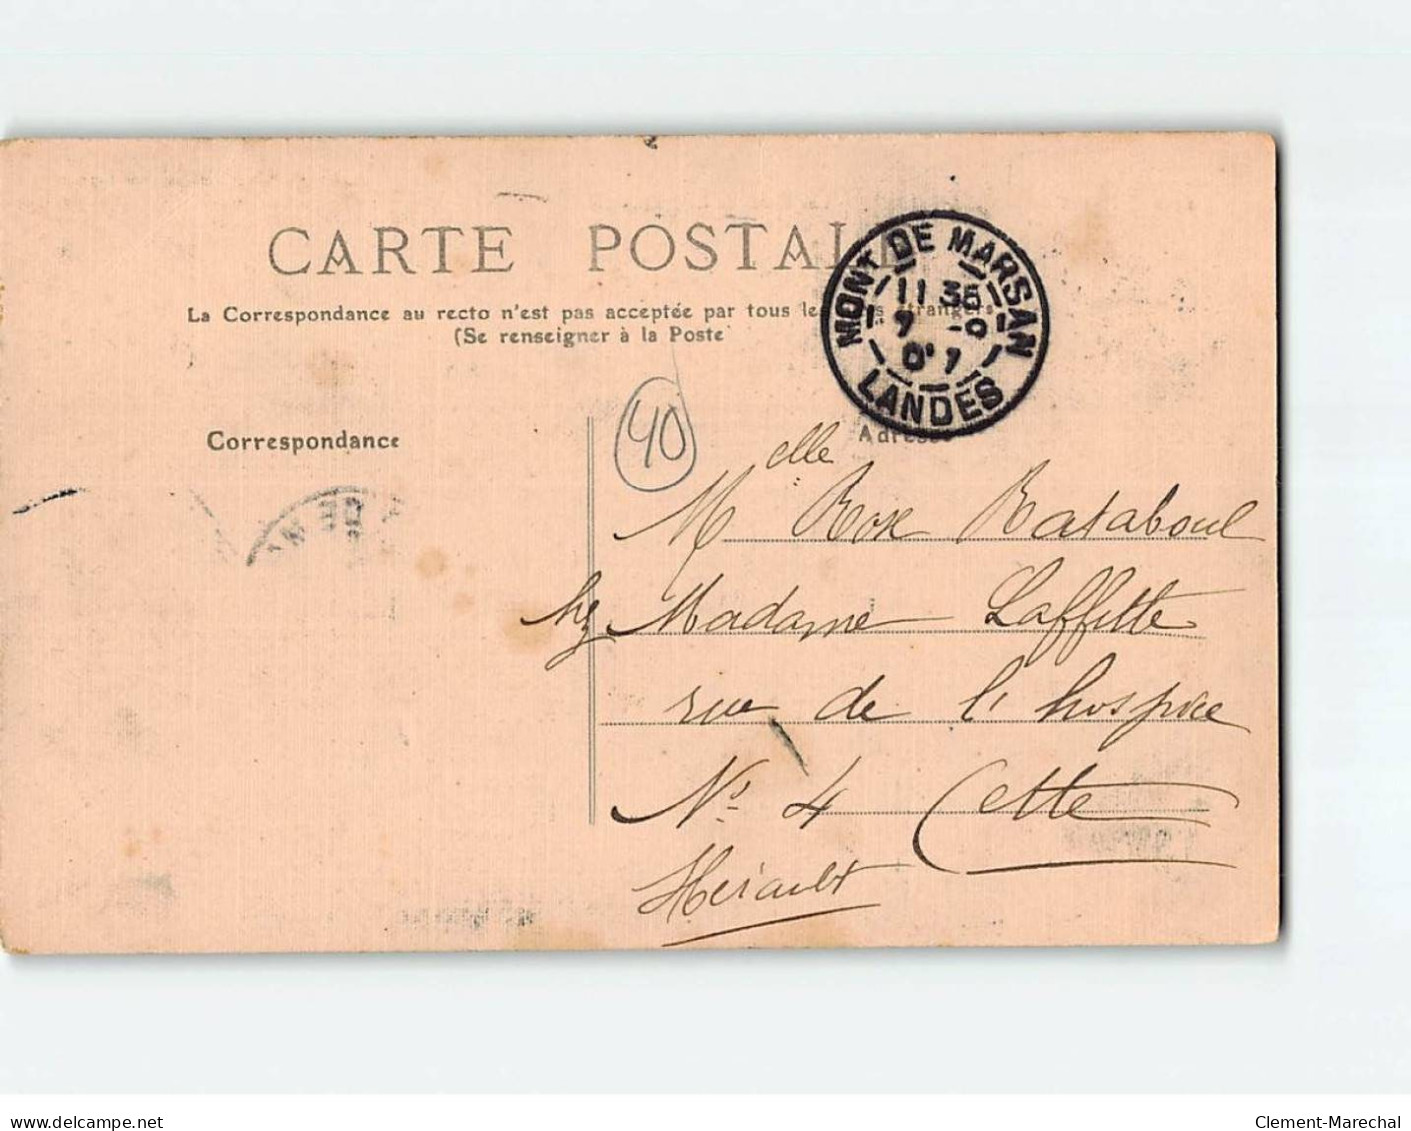 CARTE POSTALE
La Correspondance au recto n'est pas acceptée par tous les pays étrangers
(Se renseigner à la Poste
MONT DE MARSAN
11 35
LANDES
40
Correspondance
Adresse
Melle Rose Rataboul
chez Madame Laffitte
rue de l'hospice
No 4 Cette
Hérault
www.delcampe.net
Clement-Marechal